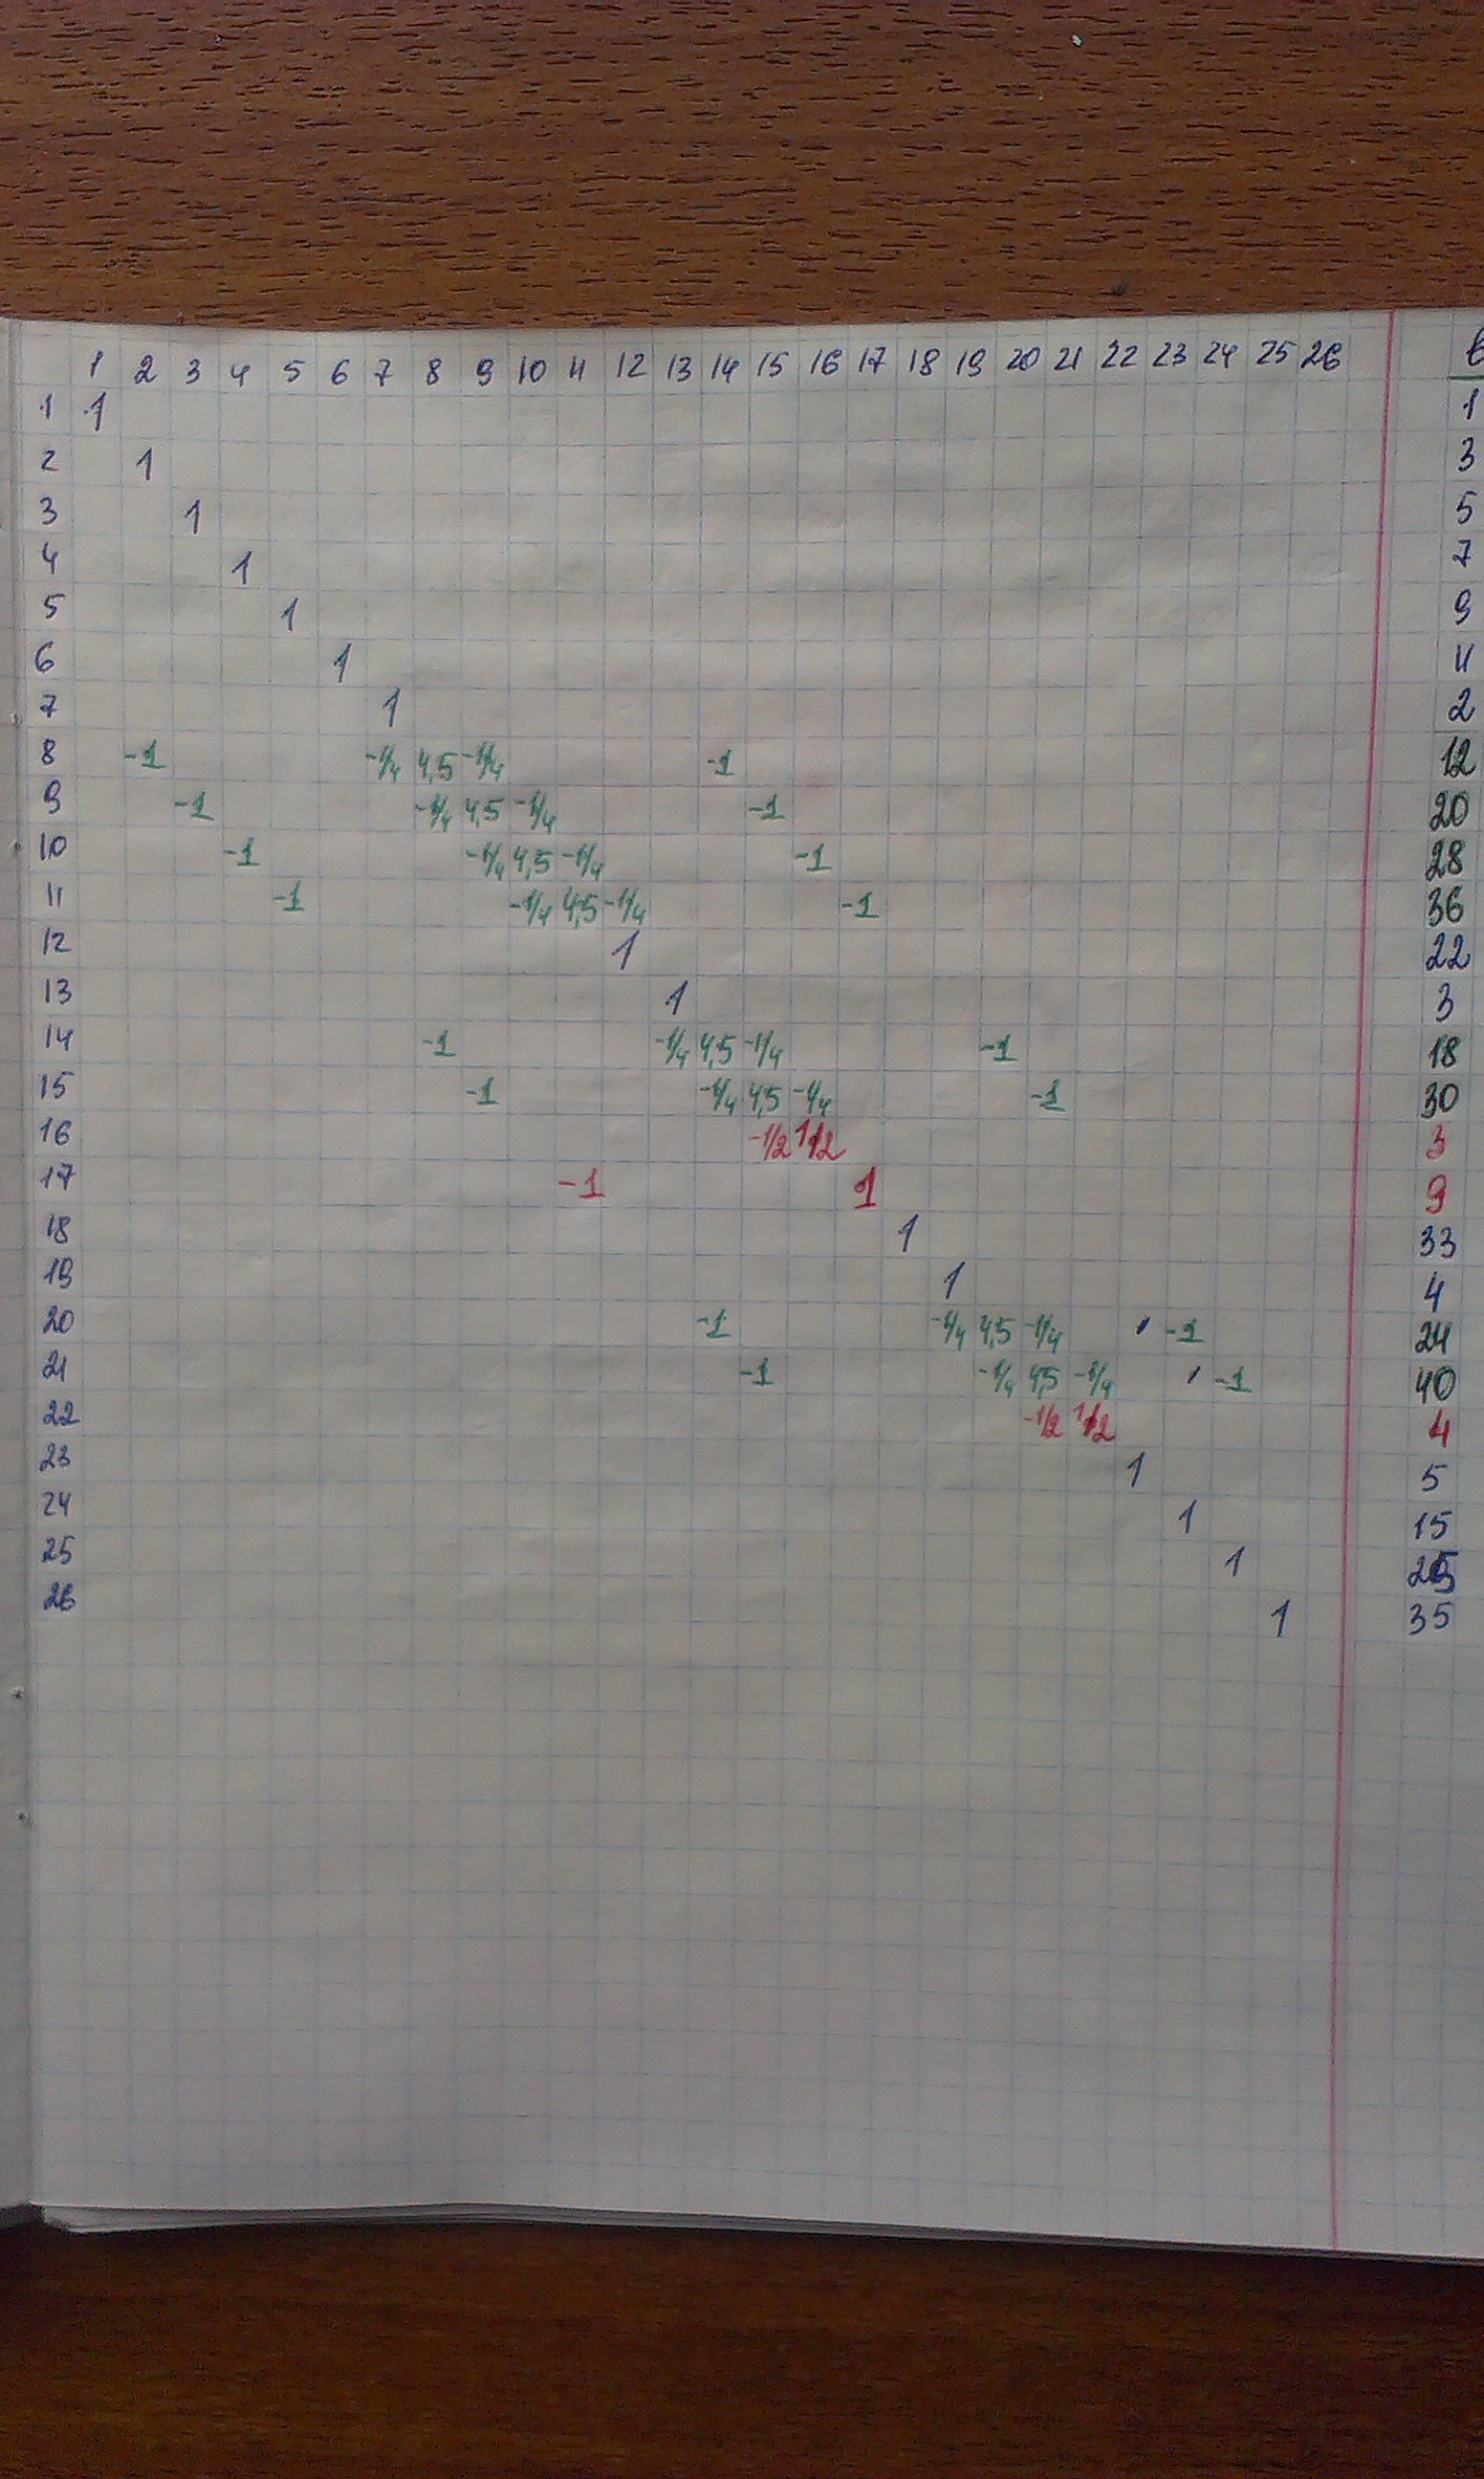 1 2 3 4 5 6 7 8 9 10 11 12 13 14 15 16 17 18 19 20 21 22 23 24 25 26
1 1 1
2 1 3
3 1 5
4 1 7
5 1 9
6 1 11
7 1 2
8 -1 -1/4 4,5 -1/4 -1 12
9 -1 -1/4 4,5 -1/4 -1 20
10 -1 -1/4 4,5 -1/4 -1 28
11 -1 -1/4 4,5 -1/4 -1 36
12 1 22
13 1 3
14 -1 -1/4 4,5 -1/4 -1 18
15 -1 -1/4 4,5 -1/4 -1 30
16 -1/2 1/2 3
17 -1 1 9
18 1 33
19 1 4
20 -1 -1/4 4,5 -1/4 -1 24
21 -1 -1/4 4,5 -1/4 -1 40
22 -1/2 1/2 4
23 1 5
24 1 15
25 1 25
26 1 35